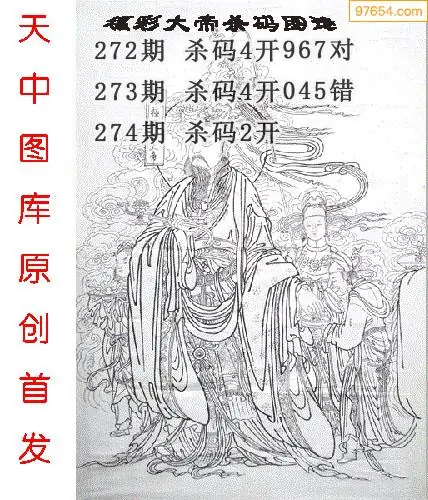 97654.com
福彩大帝杀码图谜
272期 杀码4开967对
273期 杀码4开045错
274期 杀码2开
天中图库原创首发